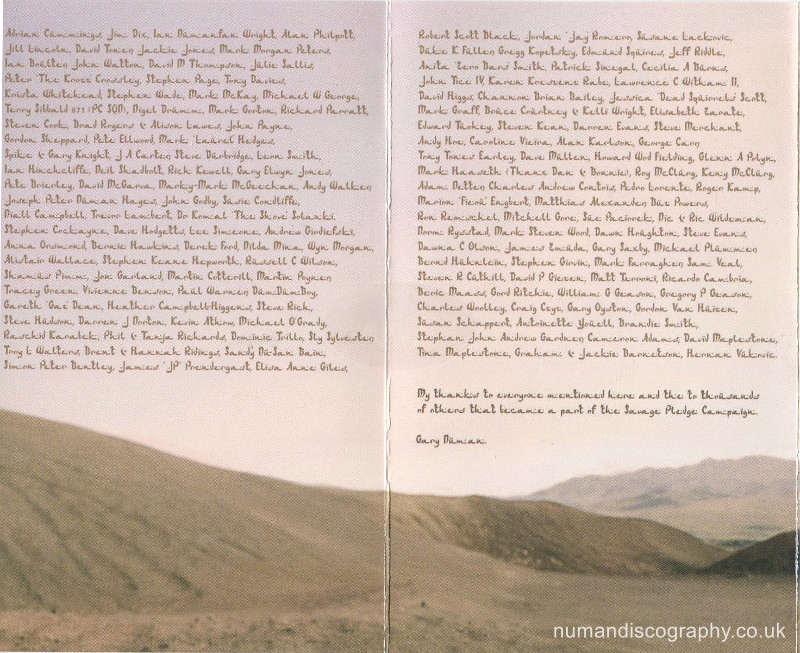 Adrian Cummings, Jim Dix, Ian Numanfan Wright, Alan Philpott,
Jill Lincoln, David Tonen, Jackie Jones, Mark Morgan Peters,
Ian Boulten, John Watton, David M Thompson, Julie Sallis,
Peter 'The Kroze' Crossley, Stephen Page, Tony Davies,
Krista Whitehead, Stephen Wade, Mark McKay, Michael W George,
Terry Sibbald 671 (PC SQN), Nigel Drumm, Mark Gorton, Richard Parratt,
Steven Cook, Brad Rogers & Alison Lawes, John Payne,
Gordon Sheppard, Pete Ellwood, Mark 'Laurel' Hedges,
Spike & Gary Knight, J A Carter, Steve Durbridge, Lenn Smith,
Ian Hinchcliffe, Neil Shadbolt, Rich Kewell, Gary Elwyn Jones,
Pete Brierley, David McGarva, Marky-Mark McGeechan, Andy Walker,
Joseph Peter Numan Hayes, John Godby, Susie Condliffe,
Niall Campbell, Trevor Lambert, Dr Komal 'The Shove' Solanki,
Stephen Cockayne, Dave Hodgetts, Lee Simeone, Andrew Girdiefski,
Anna Orismond, Bernie Hawkins, Derek Ford, Nilda Mina, Wyn Morgan,
Alistair Wallace, Stephen Keane Hepworth, Russell C Wilson,
Shamus Pimm, Jon Garland, Martin Cotterill, Martin Poynen
Tracey Green, Vivienne Denson, Paul Warren NumNumDoy,
Gareth 'Gaz' Dean, Heather Campbell-Higgens, Steve Rick,
Steve Hudson, Darren J Norton, Kevin Athow, Michael O'Grady,
Raschid Karabek, Phil & Tanja Richards, Dominic Trillo, Sly Sylvester,
Troy L Walters, Brent & Hannah Ridings, Sandy Nu-San Bain,
Simon Peter Bentley, James 'JP' Prendergast, Elisa Anne Giles,
Robert Scott Black, Jordan 'Jay' Romero, Susane Lackovic,
Duke K Fullen, Gregg Kopetsky, Edmund Squires, Jeff Riddle,
Anita 'Zero Bars' Smith, Patrick Sinegal, Cecilia A Burns,
John Tice IV, Karen Kreszene Rabe, Lawrence C Witham II,
David Higgs, Channon Brian Bailey, Jessica 'Dead Squirrels' Scott,
Mark Graff, Bruce Courtney & Kelli Wright, Elisabeth Zarate,
Edward Tuohey, Steven Kean, Darren Evans, Steve Merchant,
Andy Hne, Caroline Vieira, Alan Karlson, George Carn
Tony Tones Earley, Dave Mullen, Howard Wrd Fielding, Glenn A Polyn,
Mark Haaseth (Thanx Dan & Bonnie), Roy McClurg, Keny McClurg,
Adam Netten, Charles Andrew Comtois, Pedro Lorente, Roger Kamp,
Marion 'Fieru' Engbert, Matthias Alexander Buz Powers,
Ron Remschel, Mitchell Gore, Sue Paciorek, Nic & Ric Wildeman,
Dormr Rystad, Mark Steven Wood, Dawn Houghton, Steve Evans,
Dawna C Olson, James Zmuda, Gary Saxby, Michael Plummen
Bernd Huhnlein, Stephen Girvin, Mark Farragher, Sam Veal,
Steven R Cuthill, David P Giezen, Matt Terroni, Ricardo Cambria,
Beric Maass, Gord Ritchie, William G Geason, Gregory P Geason,
Charles Woolley, Craig Coye, Gary Oyston, Gordon Van Huizen,
Susan Schappert, Antoinette Youell, Brandie Smith,
Stephan John Andrew Gardner, Cameron Adams, David Maplestone,
Tina Maplestone, Graham & Jackie Barnetson, Hernan Vukovic.
My thanks to everyone mentioned here and the to thousands
of others that became a part of the Savage Pledge Campaign.
Gary Numan.
numandiscography.co.uk